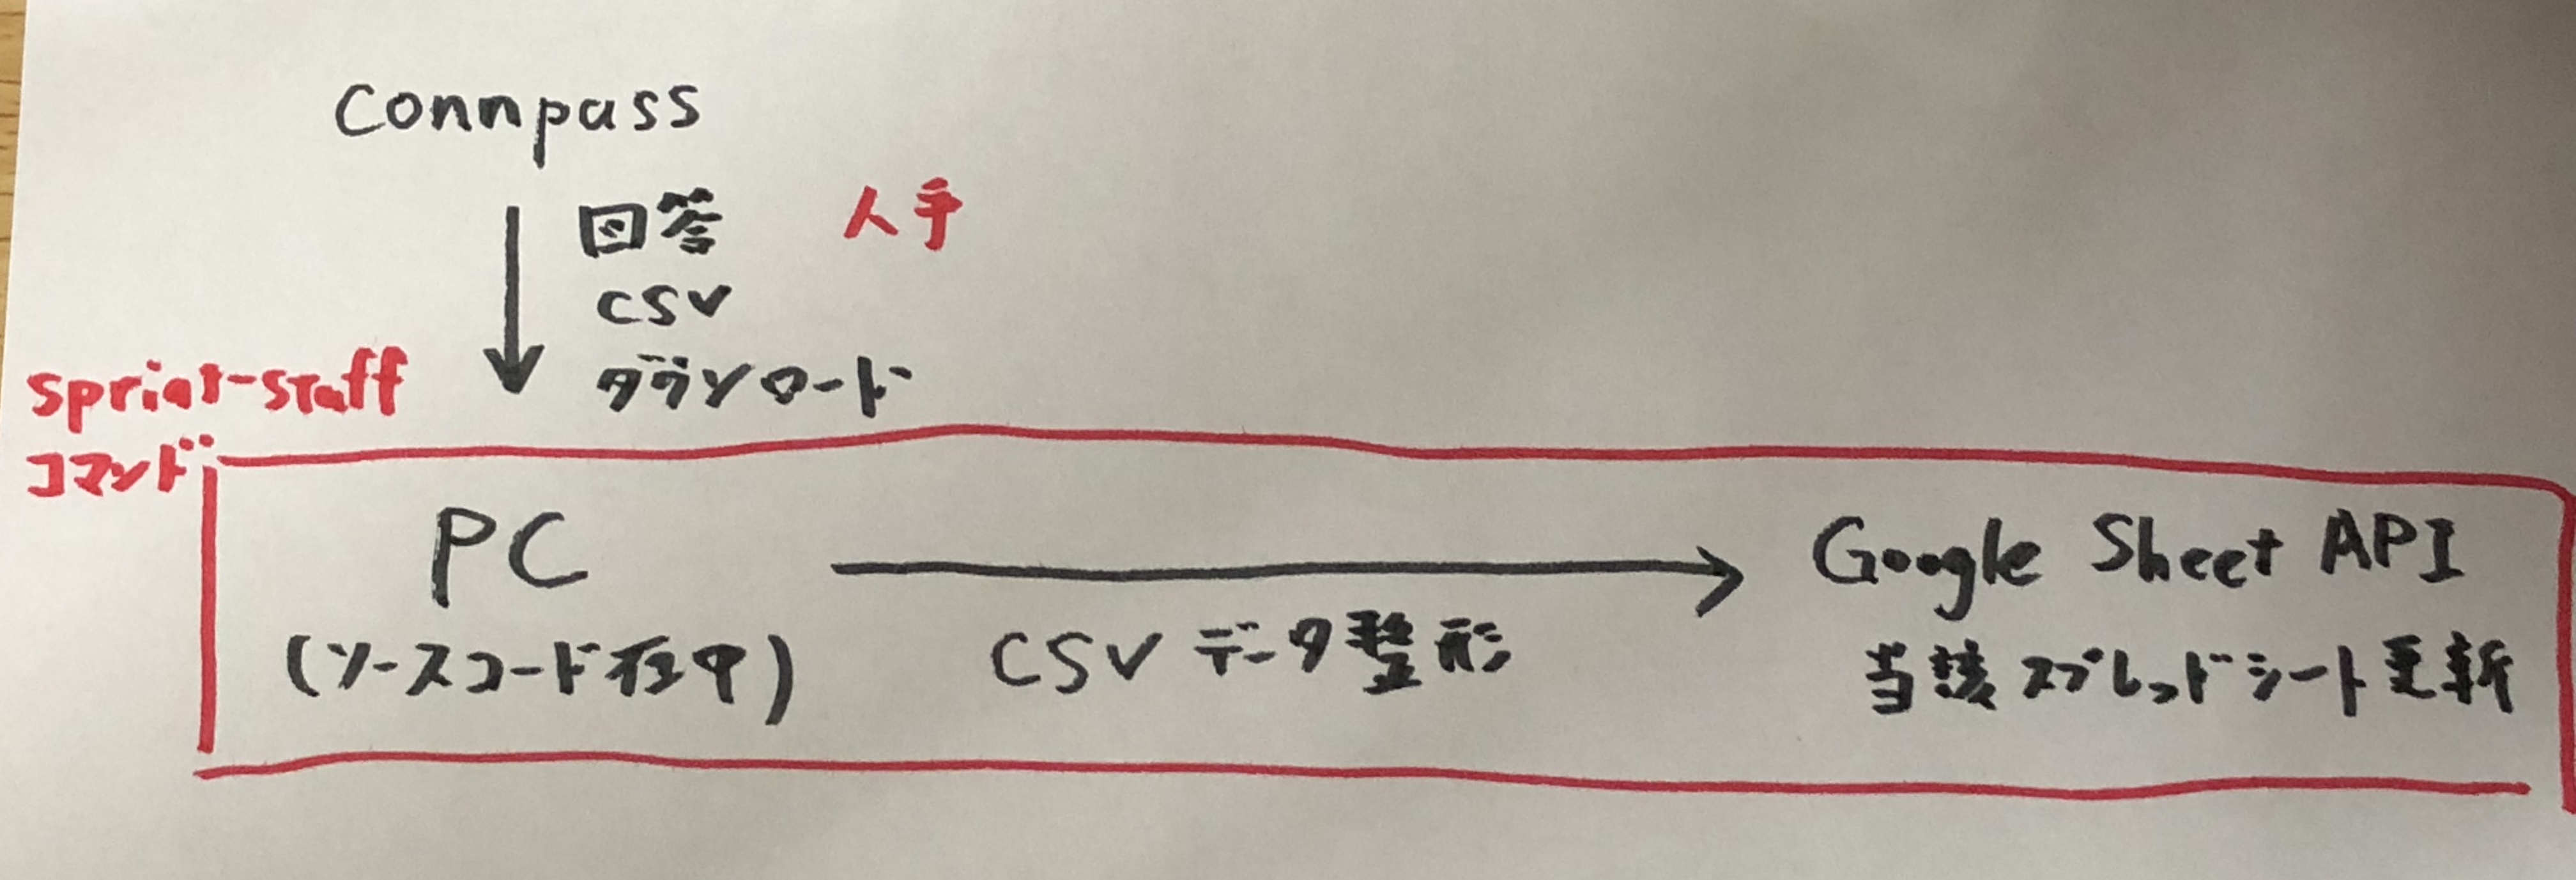 connpass
回答 人手
CSV
ダウンロード
sprint-staff
コマンド
PC
(ソースコード在中)
CSV データ整形
Google Sheet API
当該スプレッドシート更新